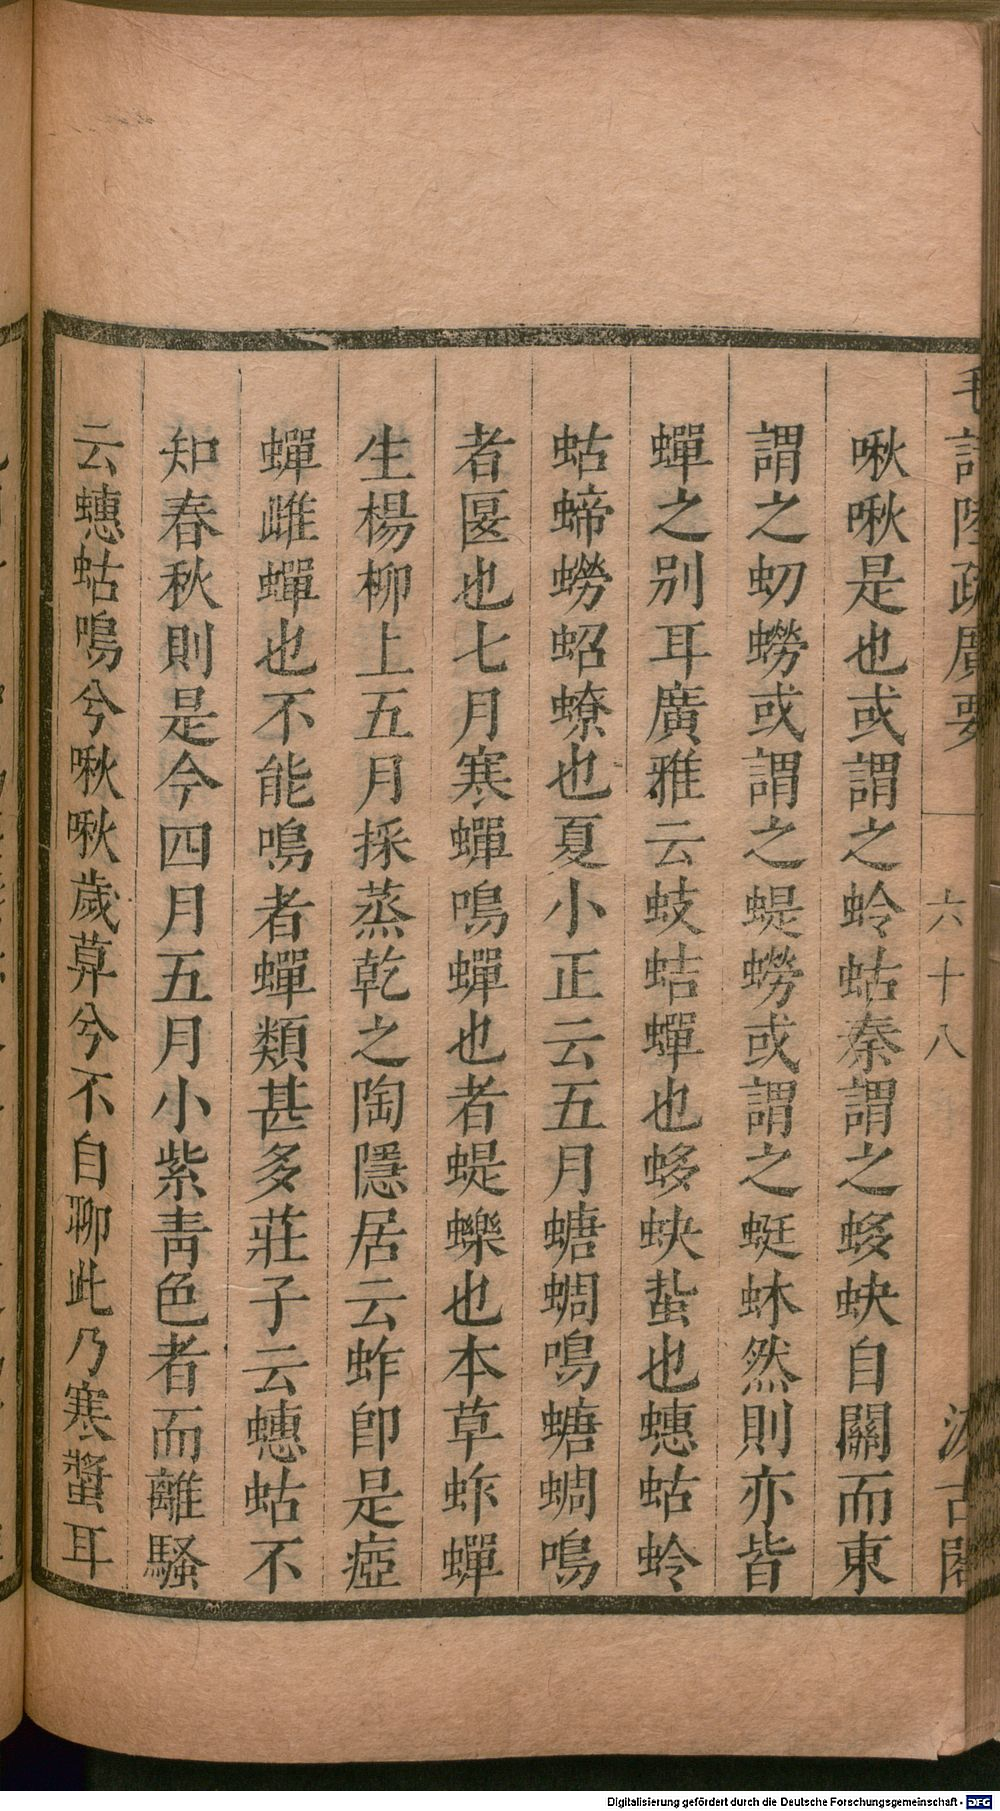 毛詩陸疏廣要
六十八
汲古閣
啾啾是也或謂之蛉蛄秦謂之蛥蚗自關而東
謂之虭蟧或謂之蝭蟧或謂之蜓蚞然則亦皆
蟬之别耳廣雅云蚑蛣蟬也蛥蚗蚻也蟪蛄蛉
蛄蟧蛁蟟也夏小正云五月螗蜩鳴螗蜩鳴
者匽也七月寒蟬鳴蟬也者蝭蠑也本草蚱蟬
生楊柳上五月採蒸乾之陶隱居云蚱卽是瘂
蟬雌蟬也不能鳴者蟬類甚多莊子云蟪蛄不
知春秋則是今四月五月小紫靑色者而離騷
云蟪蛄鳴兮啾啾歲萛兮不自聊此乃寒螿耳
Digitalisierung gefördert durch die Deutsche Forschungsgemeinschaft - DFG